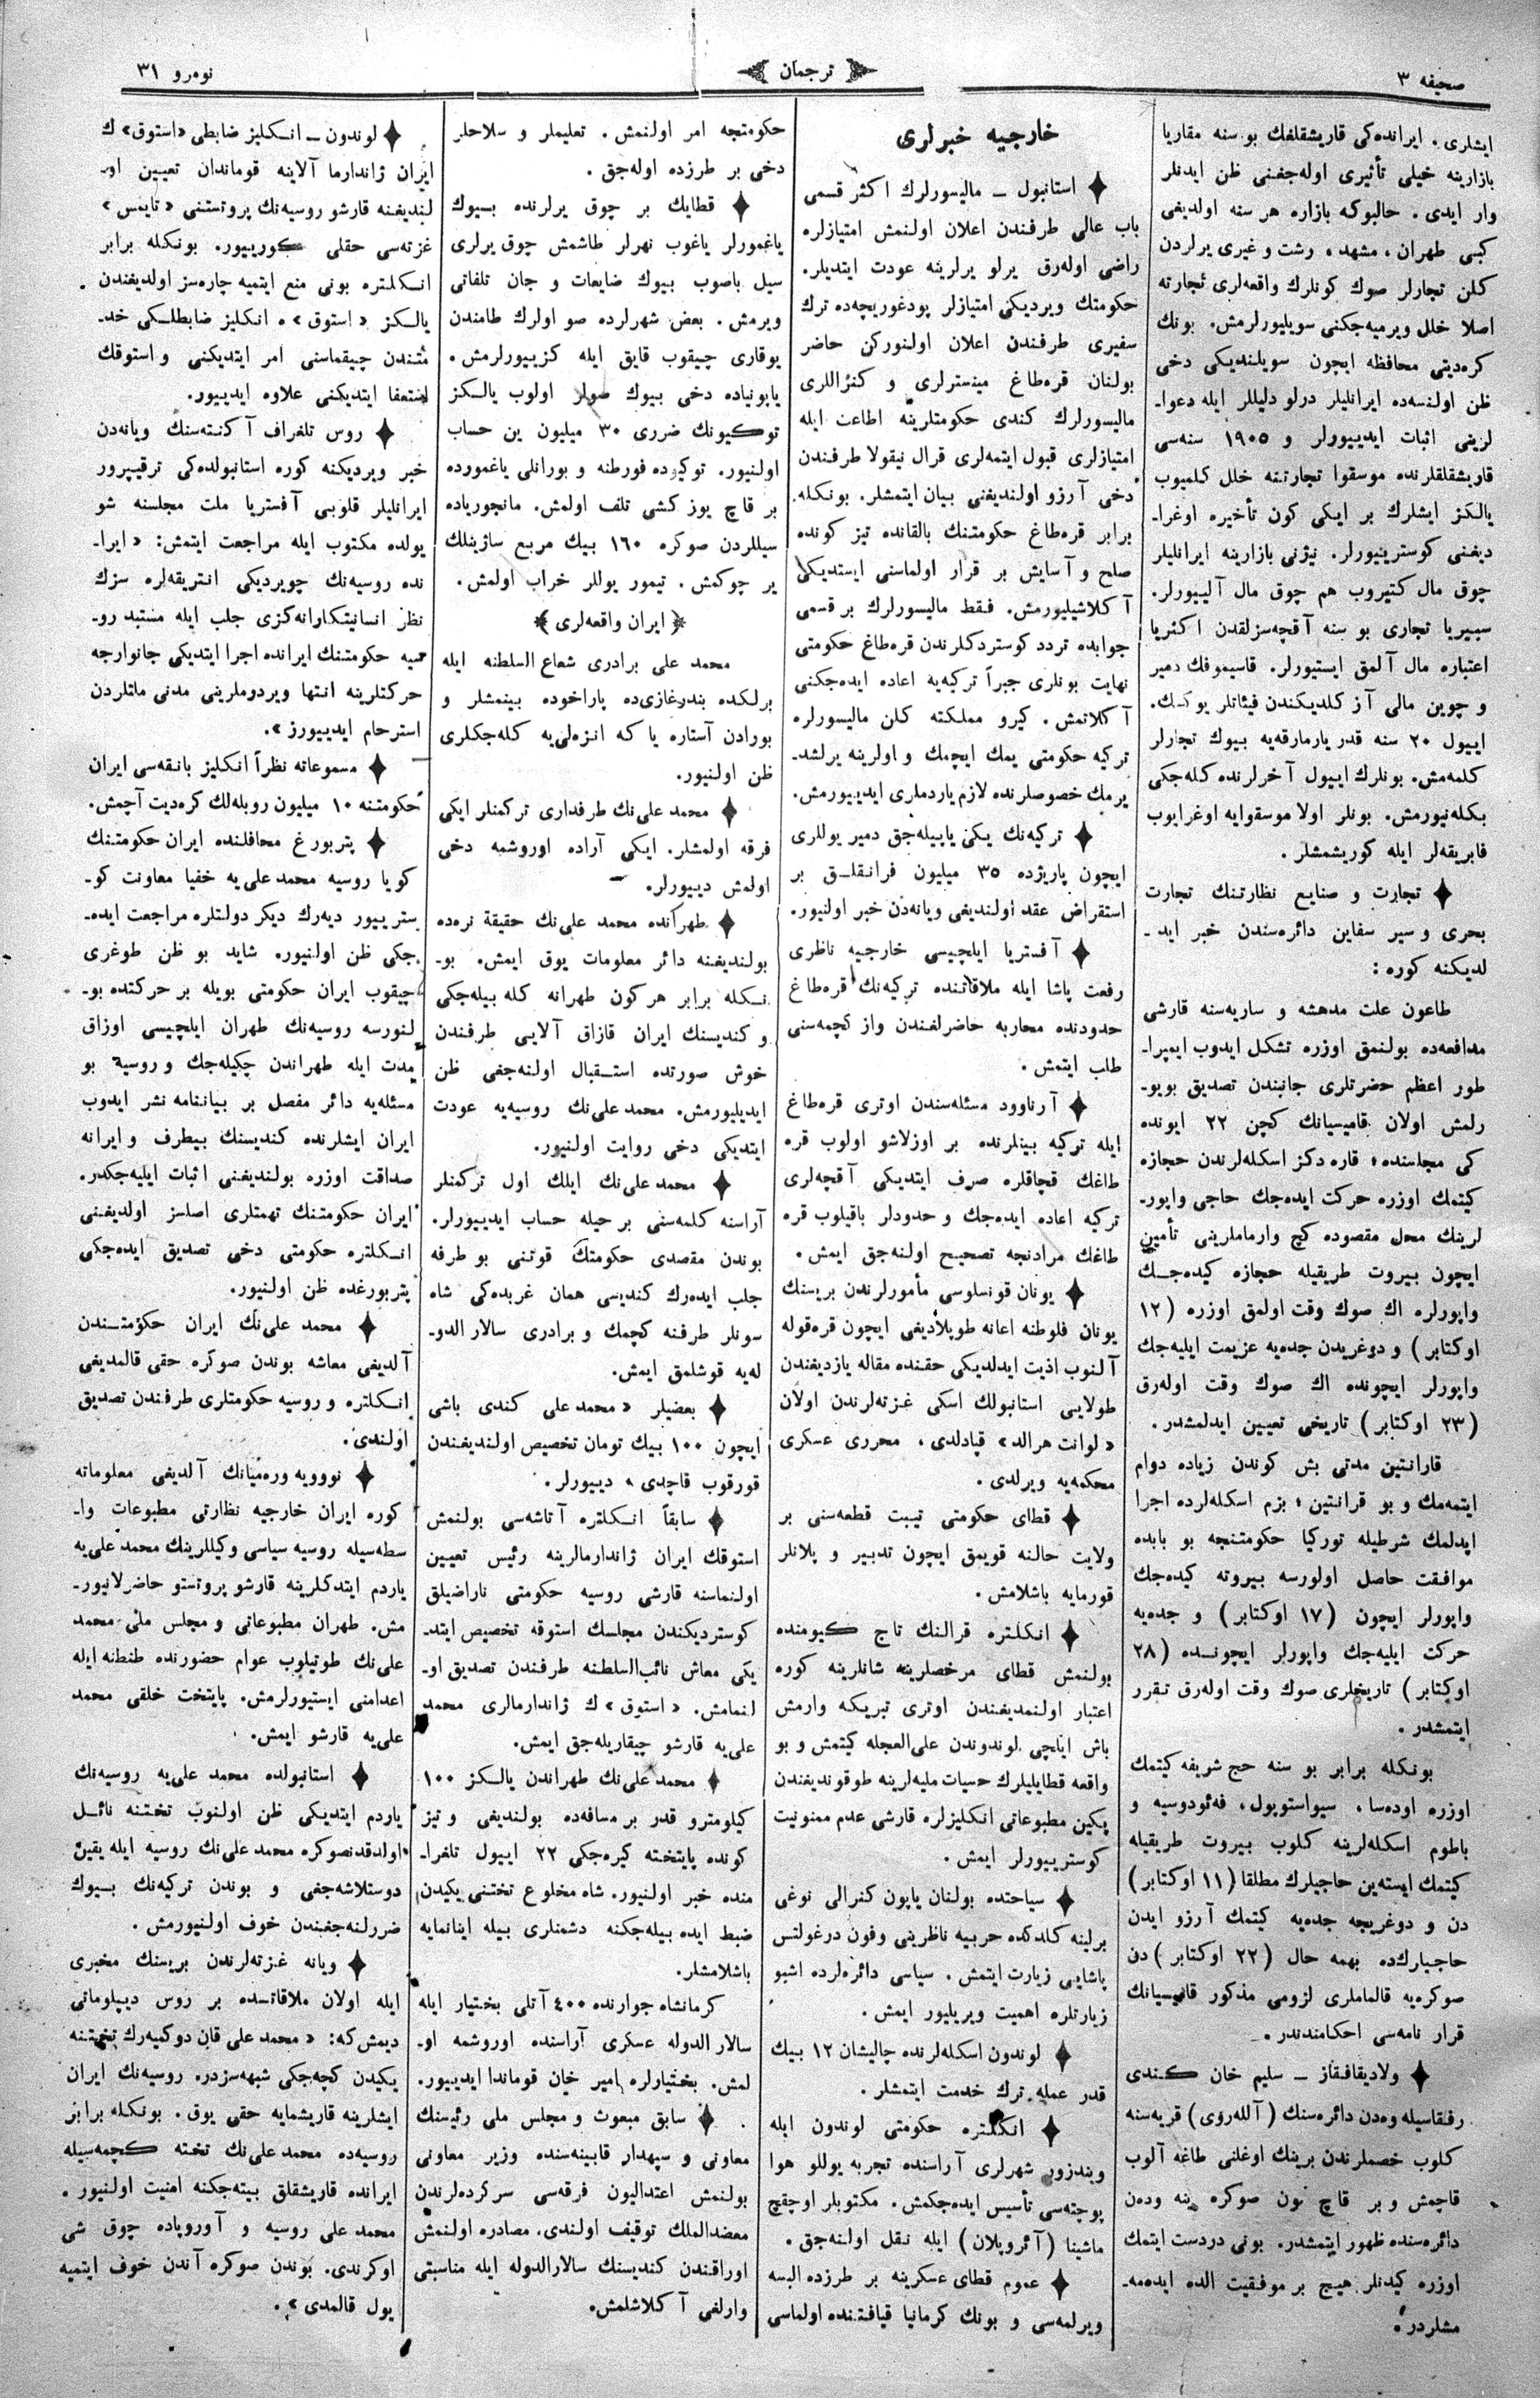 صحیفه ۳
ترجمان
نومرو ۳۱
ایشلری. ایرانده‌کی قاریشقلغك بو سنه مقاریا
بازارینه خیلی تأثیری اوله‌جغنی ظن ایدنلر
وار ایدی. حالبوکه بازاره هر سنه اولدیغی
کبی طهران، مشهد، رشت و غیری یرلردن
کلن تجارلر صوك کونلرك واقعه‌لری تجارته
اصلا خلل ویرمیه‌جکنی سویلیورلرمش. بونك
کره‌دیتی محافظه ایچون سویلندیکی دخی
ظن اولنسه‌ده ایرانلیلر درلو دلیللر ایله دعوا-
لرینی اثبات ایدییورلر و ۱۹۰۵ سنه‌سی
قاریشقلقلرنده موسقوا تجارتنه خلل کلمیوب
یالکز ایشلرك بر ایکی کون تأخیره اوغرا-
دیغنی کوسترییورلر. نیژنی بازارینه ایرانلیلر
چوق مال کتیروب هم چوق مال آلییورلر.
سیبریا تجاری بو سنه آقچه‌سزلقدن اکثریا
اعتباره مال آلمق ایستیورلر. قاسیموفك دمیر
و چوین مالی آز کلدیکندن فیئاتلر یوکسك.
اییول ۲۰ سنه قدر یارمارقه‌یه بیوك تجارلر
کلمه‌مش. بونلرك اییول آخرلرنده کله‌جکی
بکله‌نیورمش. بونلر اولا موسقوایه اوغرایوب
فابریقه‌لر ایله کوریشمشلر.
تجارت و صنایع نظارتنك تجارت
بحری و سیر سفاین دائره‌سندن خبر اید-
لدیکنه کوره:
طاعون علت مدهشه و ساریه‌سنه قارشی
مدافعه‌ده بولنمق اوزره تشکل ایدوب ایمپرا-
طور اعظم حضرتلری جانبندن تصدیق بویو-
رلمش اولان قامیسیانك کچن ۲۲ ایونده
کی مجلسنده؛ قاره دکز اسکله‌لرندن حجازه
کیتمك اوزره حرکت ایده‌جك حاجی واپور-
لرینك محل مقصوده کچ وارماملرینی تأمین
ایچون بیروت طریقیله حجازه کیده‌جك
واپورلره اك صوك وقت اولمق اوزره (۱۲
اوکتابر) و دوغریدن جده‌یه عزیمت ایلیه‌جك
واپورلر ایچونده اك صوك وقت اوله‌رق
(۲۳ اوکتابر) تاریخی تعیین ایدلمشدر.
قارانتین مدتی بش کوندن زیاده دوام
ایتمه‌مك و بو قرانتین؛ بزم اسکله‌لرده اجرا
ایدلمك شرطیله تورکیا حکومتنجه بو بابده
موافقت حاصل اولورسه بیروته کیده‌جك
واپورلر ایچون (۱۷ اوکتابر) و جده‌یه
حرکت ایلیه‌جك واپورلر ایچونده (۲۸
اوکتابر) تاریخلری صوك وقت اوله‌رق تقرر
ایتمشدر.
بونکله برابر بو سنه حج شریفه کیتمك
اوزره اوده‌سا، سیواستوپول، فه‌ئودوسیه و
باطوم اسکله‌لرینه کلوب بیروت طریقیله
کیتمك ایسته‌ین حاجیلرك مطلقا (۱۱ اوکتابر)
دن و دوغریجه جده‌یه کیتمك آرزو ایدن
حاجیلرك‌ده بهمه حال (۲۲ اوکتابر) دن
صوکره‌یه قالماملری لزومی مذکور قامیسیانك
قرار نامه‌سی احکامندندر.
ولادیقافقاز ــ سلیم خان کندی
رفقاسیله وه‌دن دائره‌سنك (آلله‌روی) قریه‌سنه
کلوب خصملرندن برینك اوغلنی طاغه آلوب
قاچمش و بر قاچ کون صوکره ینه وه‌دن
دائره‌سنده ظهور ایتمشدر. بونی دردست ایتمك
اوزره کیدنلر هیچ بر موفقیت الده ایده‌مه-
مشلردر.
خارجیه خبرلری
استانبول ــ مالیسورلرك اکثر قسمی
باب عالی طرفندن اعلان اولنمش امتیازلره
راضی اوله‌رق یرلو یرلرینه عودت ایتدیلر.
حکومتك ویردیکی امتیازلر پودغوریچه‌ده ترك
سفیری طرفندن اعلان اولنورکن حاضر
بولنان قره‌طاغ مینسترلری و کنژاللری
مالیسورلرك کندی حکومتلرینه اطاعت ایله
امتیازلری قبول ایتمه‌لری قرال نیقولا طرفندن
دخی آرزو اولندیغنی بیان ایتمشلر. بونکله
برابر قره‌طاغ حکومتنك بالقانده تیز کونده
صلح و آسایش بر قرار اولماسنی ایستدیکی
آکلاشیلیورمش. فقط مالیسورلرك بر قسمی
جوابده تردد کوستردکلرندن قره‌طاغ حکومتی
نهایت بونلری جبراً ترکیه‌یه اعاده ایده‌جکنی
آکلاتمش. کیرو مملکته کلن مالیسورلره
ترکیه حکومتی یمك ایچمك و اولرینه یرلشد-
یرمك خصوصلرنده لازم یاردملری ایدییورمش.
ترکیه‌نك یکی یاپیله‌جق دمیر یوللری
ایچون پاریژده ۳۵ میلیون فرانقلق بر
استقراض عقد اولندیغی ویانه‌دن خبر اولنیور.
آفستریا ایلچیسی خارجیه ناظری
رفعت پاشا ایله ملاقاتنده ترکیه‌نك قره‌طاغ
حدودنده محاربه حاضرلغندن واز کچمه‌سنی
طلب ایتمش.
آرناوود مسئله‌سندن اوتری قره‌طاغ
ایله ترکیه بینلرنده بر اوزلاشو اولوب قره
طاغك قچاقلره صرف ایتدیکی آقچه‌لری
ترکیه اعاده ایده‌جك و حدودلر باقیلوب قره
طاغك مرادنجه تصحیح اولنه‌جق ایمش.
یونان قونسلوسی مأمورلرندن بریسنك
یونان فلوطنه اعانه طوپلادیغی ایچون قره‌قوله
آلنوب اذیت ایدلدیکی حقنده مقاله یازدیغندن
طولایی استانبولك اسکی غزته‌لرندن اولان
«لوانت هرالد» قپادلدی، محرری عسکری
محکمه‌یه ویرلدی.
قطای حکومتی تیبت قطعه‌سنی بر
ولایت حالنه قویمق ایچون تدبیر و پلانلر
قورمایه باشلامش.
انکلتره قرالنك تاج کیومنده
بولنمش قطای مرخصلرینه شانلرینه کوره
اعتبار اولنمدیغندن اوتری تبریکه وارمش
باش ایلچی لوندوندن علی‌العجله کیتمش و بو
واقعه قطایلیلرك حسیات ملیه‌لرینه طوقوندیغندن
پکین مطبوعاتی انکلیزلره قارشی عدم ممنونیت
کوسترییورلر ایمش.
سیاحتده بولنان یاپون کنرالی نوغی
برلینه کلدکده حربیه ناظرینی وفون درغولتس
پاشایی زیارت ایتمش. سیاسی دائره‌لرده اشبو
زیارتلره اهمیت ویریلیور ایمش.
لوندون اسکله‌لرنده چالیشان ۱۲ بیك
قدر عمله ترك خدمت ایتمشلر.
انکلتره حکومتی لوندون ایله
ویندزور شهرلری آراسنده تجربه یوللو هوا
پوچته‌سی تأسیس ایده‌جکمش. مکتوبلر اوچقچ
ماشینا (آئروپلان) ایله نقل اولنه‌جق.
عموم قطای عسکرینه بر طرزده البسه
ویرلمه‌سی و بونك کرمانیا قیافتنده اولماسی
حکومتجه امر اولنمش. تعلیملر و سلاحلر
دخی بر طرزده اوله‌جق.
قطایك بر چوق یرلرنده بیوك
یاغمورلر یاغوب نهرلر طاشمش چوق یرلری
سیل باصوب بیوك ضایعات و جان تلفاتی
ویرمش. بعض شهرلرده صو اولرك طامندن
یوقاری چیقوب قایق ایله کزییورلرمش.
یاپونیاده دخی بیوك صولر اولوب یالکز
توکیونك ضرری ۳۰ میلیون ین حساب
اولنیور. توکیوده فورطنه و بورانلی یاغمورده
بر قاچ یوز کشی تلف اولمش. مانجوریاده
سیللردن صوکره ۱۶۰ بیك مربع ساژینلك
یر چوکمش. تیمور یوللر خراب اولمش.
﴿ ایران واقعه‌لری ﴾
محمد علی برادری شعاع السلطنه ایله
برلکده بندرغازی‌ده پاراخوده بینمشلر و
بورادن آستاره یا که انزه‌لی‌یه کله‌جکلری
ظن اولنیور.
محمد علی‌نك طرفداری ترکمنلر ایکی
فرقه اولمشلر. ایکی آراده اوروشمه دخی
اولمش دییورلر.
طهرانده محمد علی‌نك حقیقة نره‌ده
بولندیغنه دائر معلومات یوق ایمش. بو-
نکله برابر هر کون طهرانه کله بیله‌جکی
و کندیسنك ایران قازاق آلایی طرفندن
خوش صورتده استقبال اولنه‌جغی ظن
ایدیلیورمش. محمد علی‌نك روسیه‌یه عودت
ایتدیکی دخی روایت اولنیور.
محمد علی‌نك ایلك اول ترکمنلر
آراسنه کلمه‌سنی بر حیله حساب ایدییورلر.
بوندن مقصدی حکومتك قوتنی بو طرفه
جلب ایده‌رك کندیسی همان غربده‌کی شاه
سونلر طرفنه کچمك و برادری سالار الدو-
له‌یه قوشلمق ایمش.
بعضیلر «محمد علی کندی باشی
ایچون ۱۰۰ بیك تومان تخصیص اولندیغندن
قورقوب قاچدی» دییورلر.
سابقاً انکلتره آتاشه‌سی بولنمش
استوقك ایران ژاندارمالرینه رئیس تعیین
اولنماسنه قارشی روسیه حکومتی ناراضیلق
کوستردیکندن مجلسك استوقه تخصیص ایتد-
یکی معاش نائب‌السلطنه طرفندن تصدیق او-
لنمامش. «استوق» ك ژاندارمالری محمد
علی‌یه قارشو چیقاریله‌جق ایمش.
محمد علی‌نك طهراندن یالکز ۱۰۰
کیلومترو قدر بر مسافه‌ده بولندیغی و تیز
کونده پایتخته کیره‌جکی ۲۲ اییول تلغرا-
منده خبر اولنیور. شاه مخلوع تختنی یکیدن
ضبط ایده بیله‌جکنه دشمنلری بیله اینانمایه
باشلامشلر.
کرمانشاه جوارنده ۴۰۰ آتلی بختیار ایله
سالار الدوله عسکری آراسنده اوروشمه او-
لمش. بختیارلره امیر خان قوماندا ایدییور.
سابق مبعوث و مجلس ملی رئیسنك
معاونی و سپهدار قابینه‌سنده وزیر معاونی
بولنمش اعتدالیون فرقه‌سی سرکرده‌لرندن
معضدالملك توقیف اولندی. مصادره اولنمش
اوراقندن کندیسنك سالارالدوله ایله مناسبتی
وارلغی آکلاشلمش.
لوندون ــ انکلیز ضابطی «استوق» ك
ایران ژاندارما آلاینه قوماندان تعیین او-
لندیغنه قارشو روسیه‌نك پروتستنی «تایمس»
غزته‌سی حقلی کورییور. بونکله برابر
انکلتره بونی منع ایتمیه چاره‌سز اولدیغندن
یالکز «استوق» ه انکلیز ضابطلکی خد-
متندن چیقماسنی امر ایتدیکنی و استوقك
استعفا ایتدیکنی علاوه ایدییور.
روس تلغراف آکنته‌سنك ویانه‌دن
خبر ویردیکنه کوره استانبولده‌کی ترقیپرور
ایرانلیلر قلوبی آفستریا ملت مجلسنه شو
یولده مکتوب ایله مراجعت ایتمش: «ایرا-
نده روسیه‌نك چویردیکی انتریقه‌لره سزك
نظر انسانیتکارانه‌کزی جلب ایله مستبد رو-
سیه حکومتنك ایرانده اجرا ایتدیکی جانوارجه
حرکتلرینه انتها ویردوملرینی مدنی ملتلردن
استرحام ایدییورز».
مسموعاته نظراً انکلیز بانقه‌سی ایران
حکومتنه ۱۰ میلیون روبله‌لك کره‌دیت آچمش.
پتربورغ محافلنده ایران حکومتنك
کویا روسیه محمد علی‌یه خفیا معاونت کو-
سترییور دیه‌رك دیکر دولتلره مراجعت ایده-
جکی ظن اولنیور. شاید بو ظن طوغری
چیقوب ایران حکومتی بویله بر حرکتده بو-
لنورسه روسیه‌نك طهران ایلچیسی اوزاق
مدت ایله طهراندن چکیله‌جك و روسیه بو
مسئله‌یه دائر مفصل بر بیاننامه نشر ایدوب
ایران ایشلرنده کندیسنك بیطرف و ایرانه
صداقت اوزره بولندیغنی اثبات ایلیه‌جکدر.
ایران حکومتنك تهمتلری اصلسز اولدیغنی
انکلتره حکومتی دخی تصدیق ایده‌جکی
پتربورغده ظن اولنیور.
محمد علی‌نك ایران حکومتندن
آلدیغی معاشه بوندن صوکره حقی قالمدیغی
انکلتره و روسیه حکومتلری طرفندن تصدیق
اولندی.
نوویه وره‌میانك آلدیغی معلوماته
کوره ایران خارجیه نظارتی مطبوعات وا-
سطه‌سیله روسیه سیاسی وکیللرینك محمد علی‌یه
یاردم ایتدکلرینه قارشو پروتستو حاضرلانیور-
مش. طهران مطبوعاتی و مجلس ملی محمد
علی‌نك طوتیلوب عوام حضورنده طنطنه ایله
اعدامنی ایستیورلرمش. پایتخت خلقی محمد
علی‌یه قارشو ایمش.
استانبولده محمد علی‌یه روسیه‌نك
یاردم ایتدیکی ظن اولنوب تختنه نائل
اولدقدنصوکره محمد علی‌نك روسیه ایله یقین
دوستلاشه‌جغی و بوندن ترکیه‌نك بیوك
ضررلنه‌جغندن خوف اولنیورمش.
ویانه غزته‌لرندن بریسنك مخبری
ایله اولان ملاقاتنده بر روس دیپلوماتی
دیمش‌که: «محمد علی قان دوکمیه‌رك تختنه
یکیدن کچه‌جکی شبهه‌سزدر. روسیه‌نك ایران
ایشلرینه قاریشمایه حقی یوق. بونکله برابر
روسیه‌ده محمد علی‌نك تخته کچمه‌سیله
ایرانده قاریشقلق بیته‌جکنه امنیت اولنیور.
محمد علی روسیه و آوروپاده چوق شی
اوکرندی. بوندن صوکره آندن خوف ایتمیه
یول قالمدی».